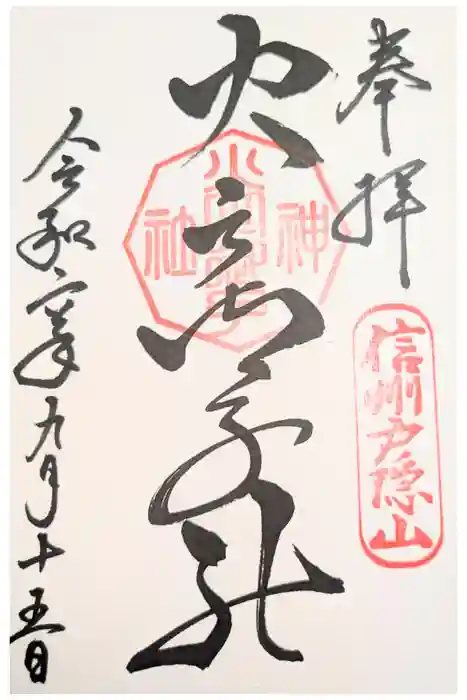 奉拝
信州戸隠山
火之御子社
神社
令和六年九月十五日